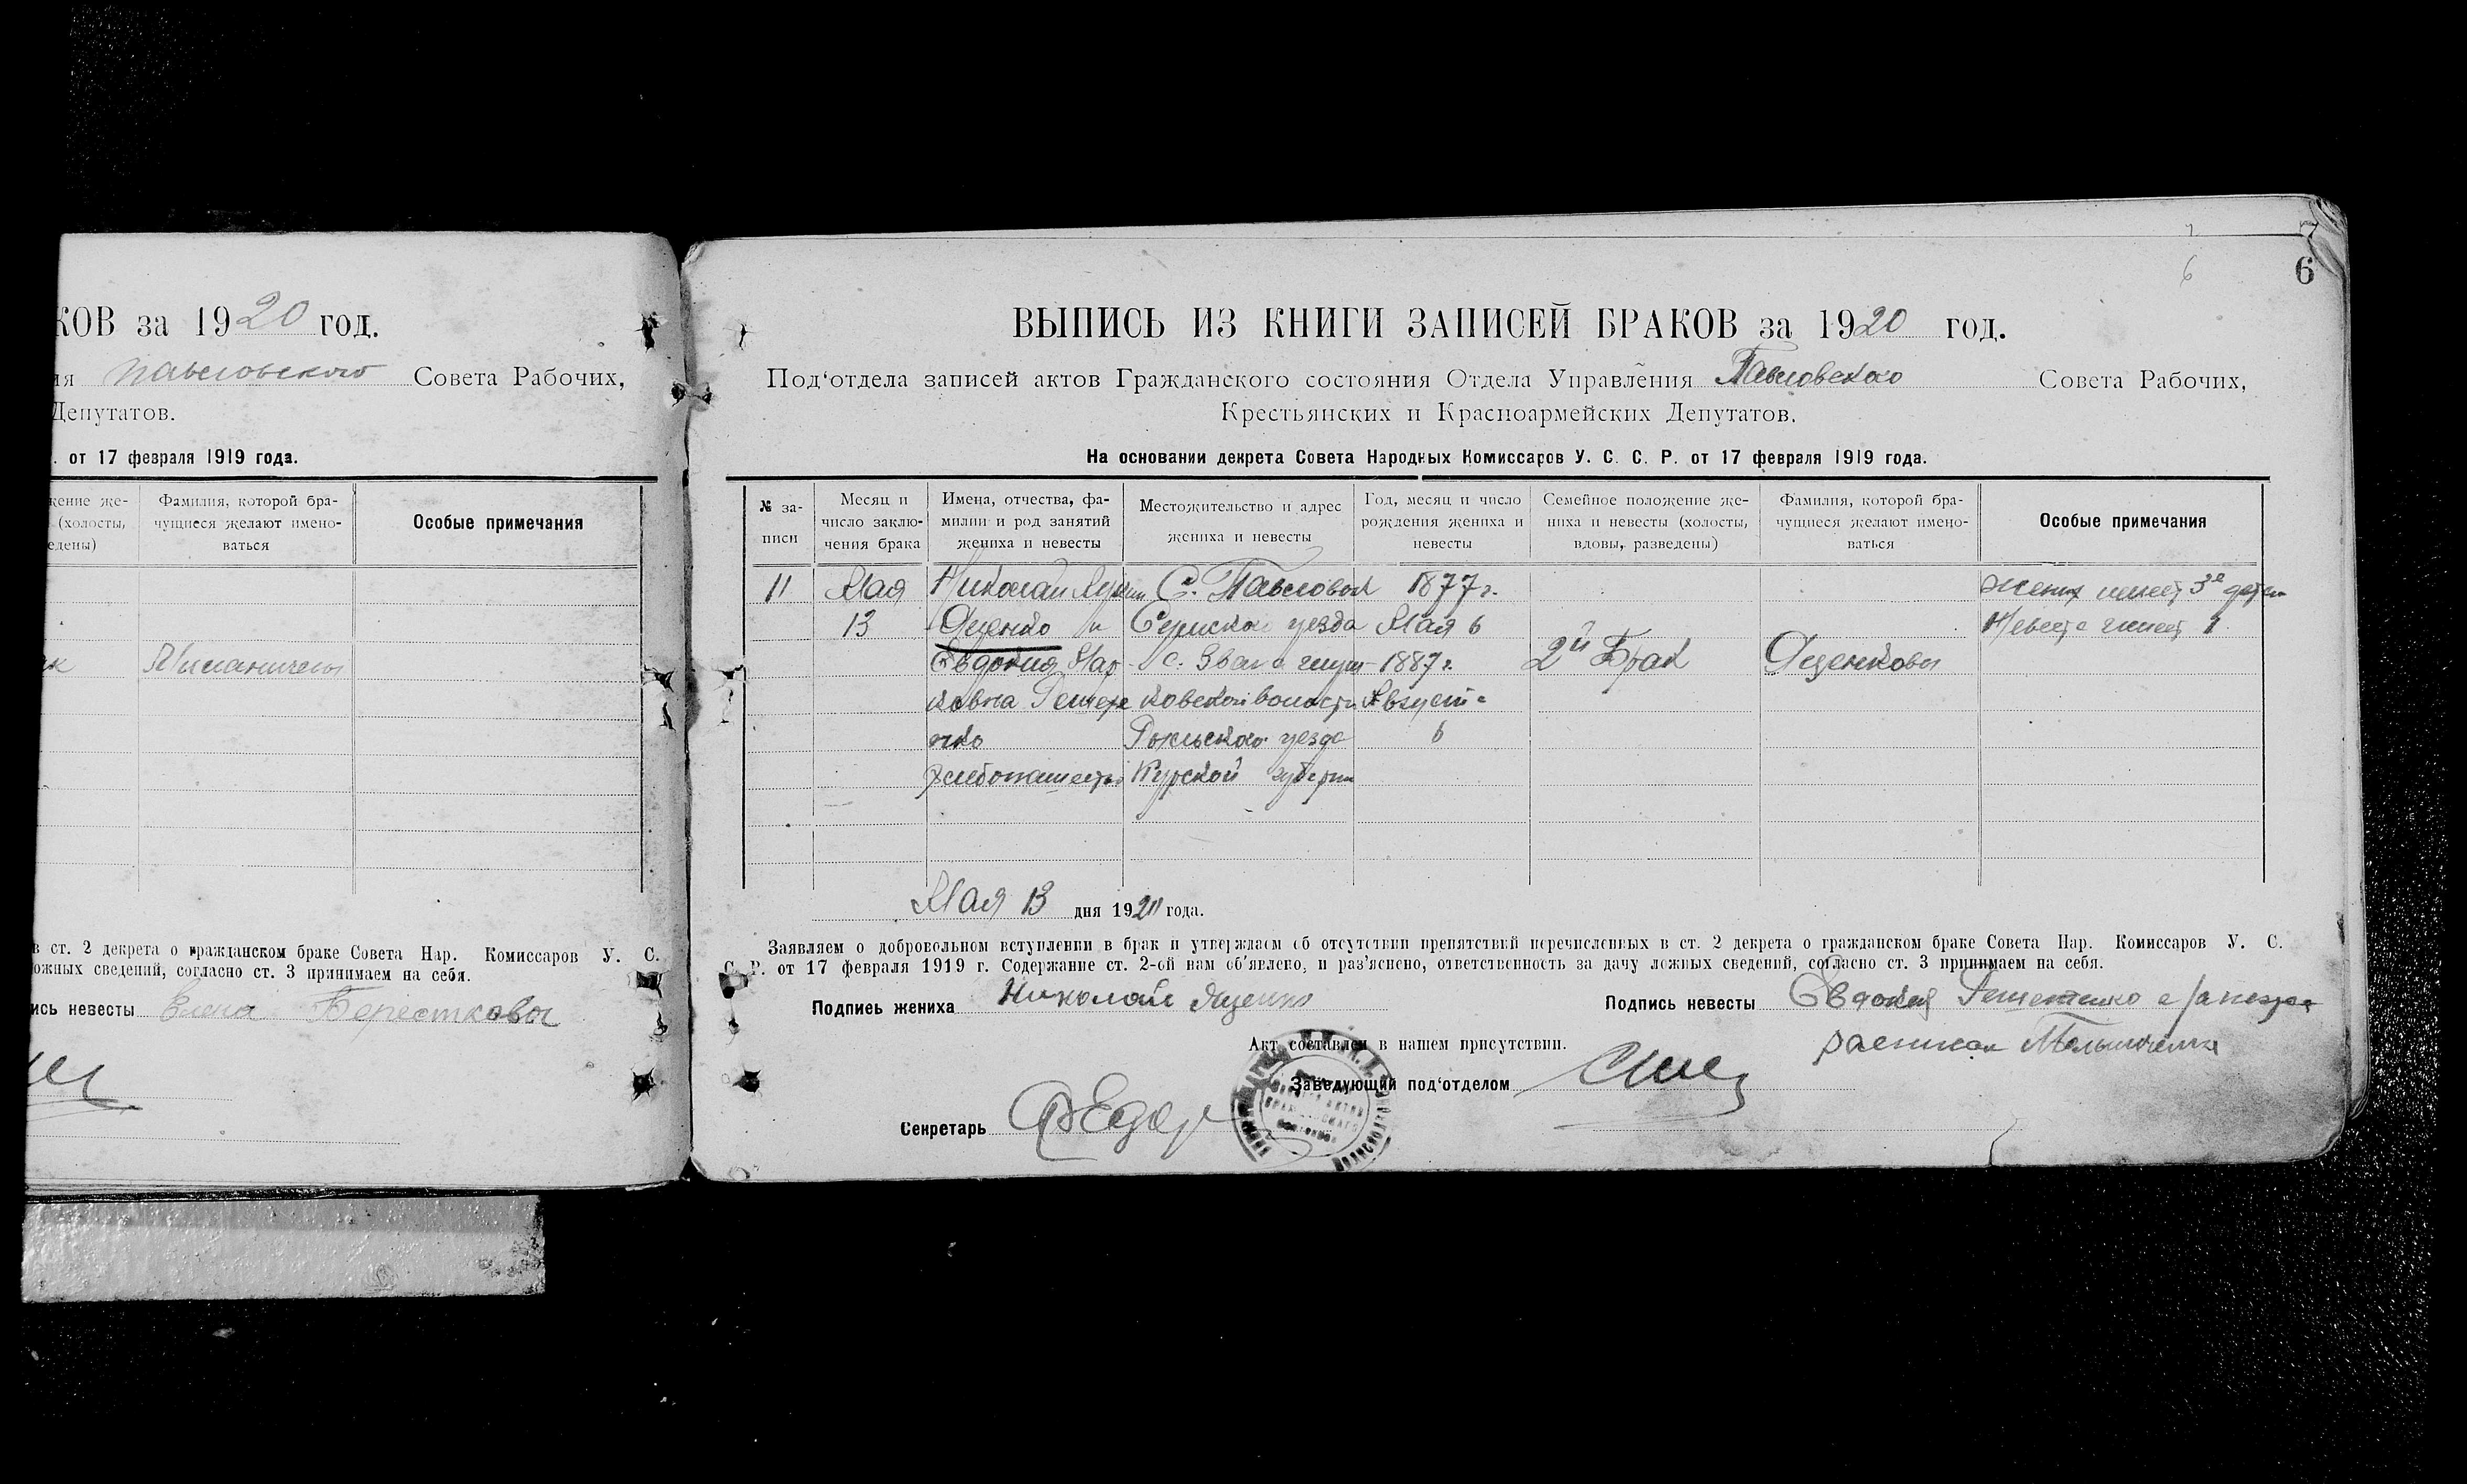 КОВ за 1920 год.
ия Павловского Совета Рабочих,
Депутатов.
. от 17 февраля 1919 года.
жение же-
(холосты,
едены)
Фамилия, которой бра-
чущиеся желают имено-
ваться
Особые примечания
в ст. 2 декрета о гражданском браке Совета Нар. Комиссаров У. С.
ожных сведений, согласно ст. 3 принимаем на себя.
ись невесты Елена Бересткова
7
6
6
ВЫПИСЬ ИЗ КНИГИ ЗАПИСЕЙ БРАКОВ за 1920 год.
Под‘отдела записей актов Гражданского состояния Отдела Управления Павловского Совета Рабочих,
Крестьянских и Красноармейских Депутатов.
На основании декрета Совета Народных Комиссаров У. С. С. Р. от 17 февраля 1919 года.
№ за-
писи
Месяц и
число заклю-
чения брака
Имена, отчества, фа-
милии и род занятий
жениха и невесты
Местожительство и адрес
жениха и невесты
Год, месяц и число
рождения жениха и
невесты
Семейное положение же-
ниха и невесты (холосты,
вдовы, разведены)
Фамилия, которой бра-
чущиеся желают имено-
ваться
Особые примечания
11 Мая Николай С. Павловок 1877 г. Жених имеет 3е детей
13 Яценко и Сумског уезда Мая 6 Невеста имеет 1
Евдокия Мар- с. 1887 г. 2й Брак Яценковы
ковна ковской волости Августа
Рыльского уезда 6
хлебопашество Курской губернии
Мая 13 дня 1920 года.
Заявляем о добровольном вступлении в брак и утверждаем об отсутствии препятствий перечисленных в ст. 2 декрета о гражданском браке Совета Нар. Комиссаров У. С.
С. Р. от 17 февраля 1919 г. Содержание ст. 2-ой нам об‘явлено, и раз‘яснено, ответственность за дачу ложных сведений, согласно ст. 3 принимаем на себя.
Подпись жениха Николай Яценко Подпись невесты Евдокия
Акт составлен в нашем присутствии.
Заведующий под‘отделом
Секретарь